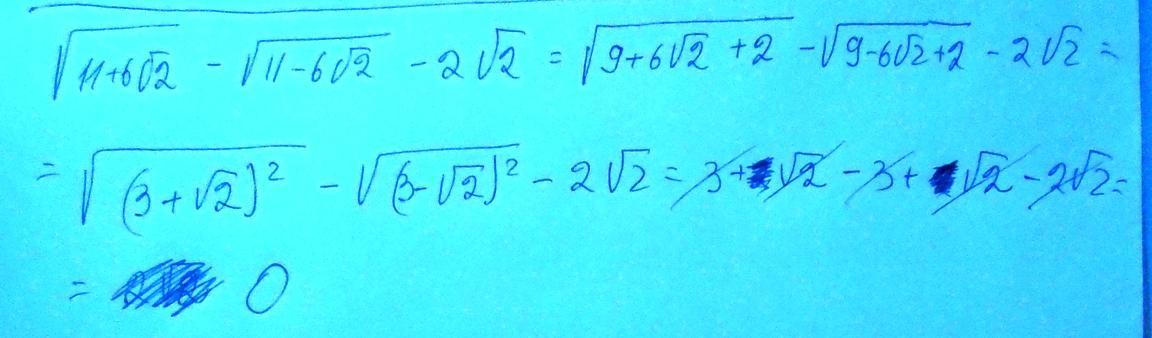 √(11+6√2) - √(11-6√2) - 2√2 = √(9+6√2+2) - √(9-6√2+2) - 2√2 =
= √((3+√2)²) - √((3-√2)²) - 2√2 = 3+√2 - 3+√2 - 2√2 =
= 0